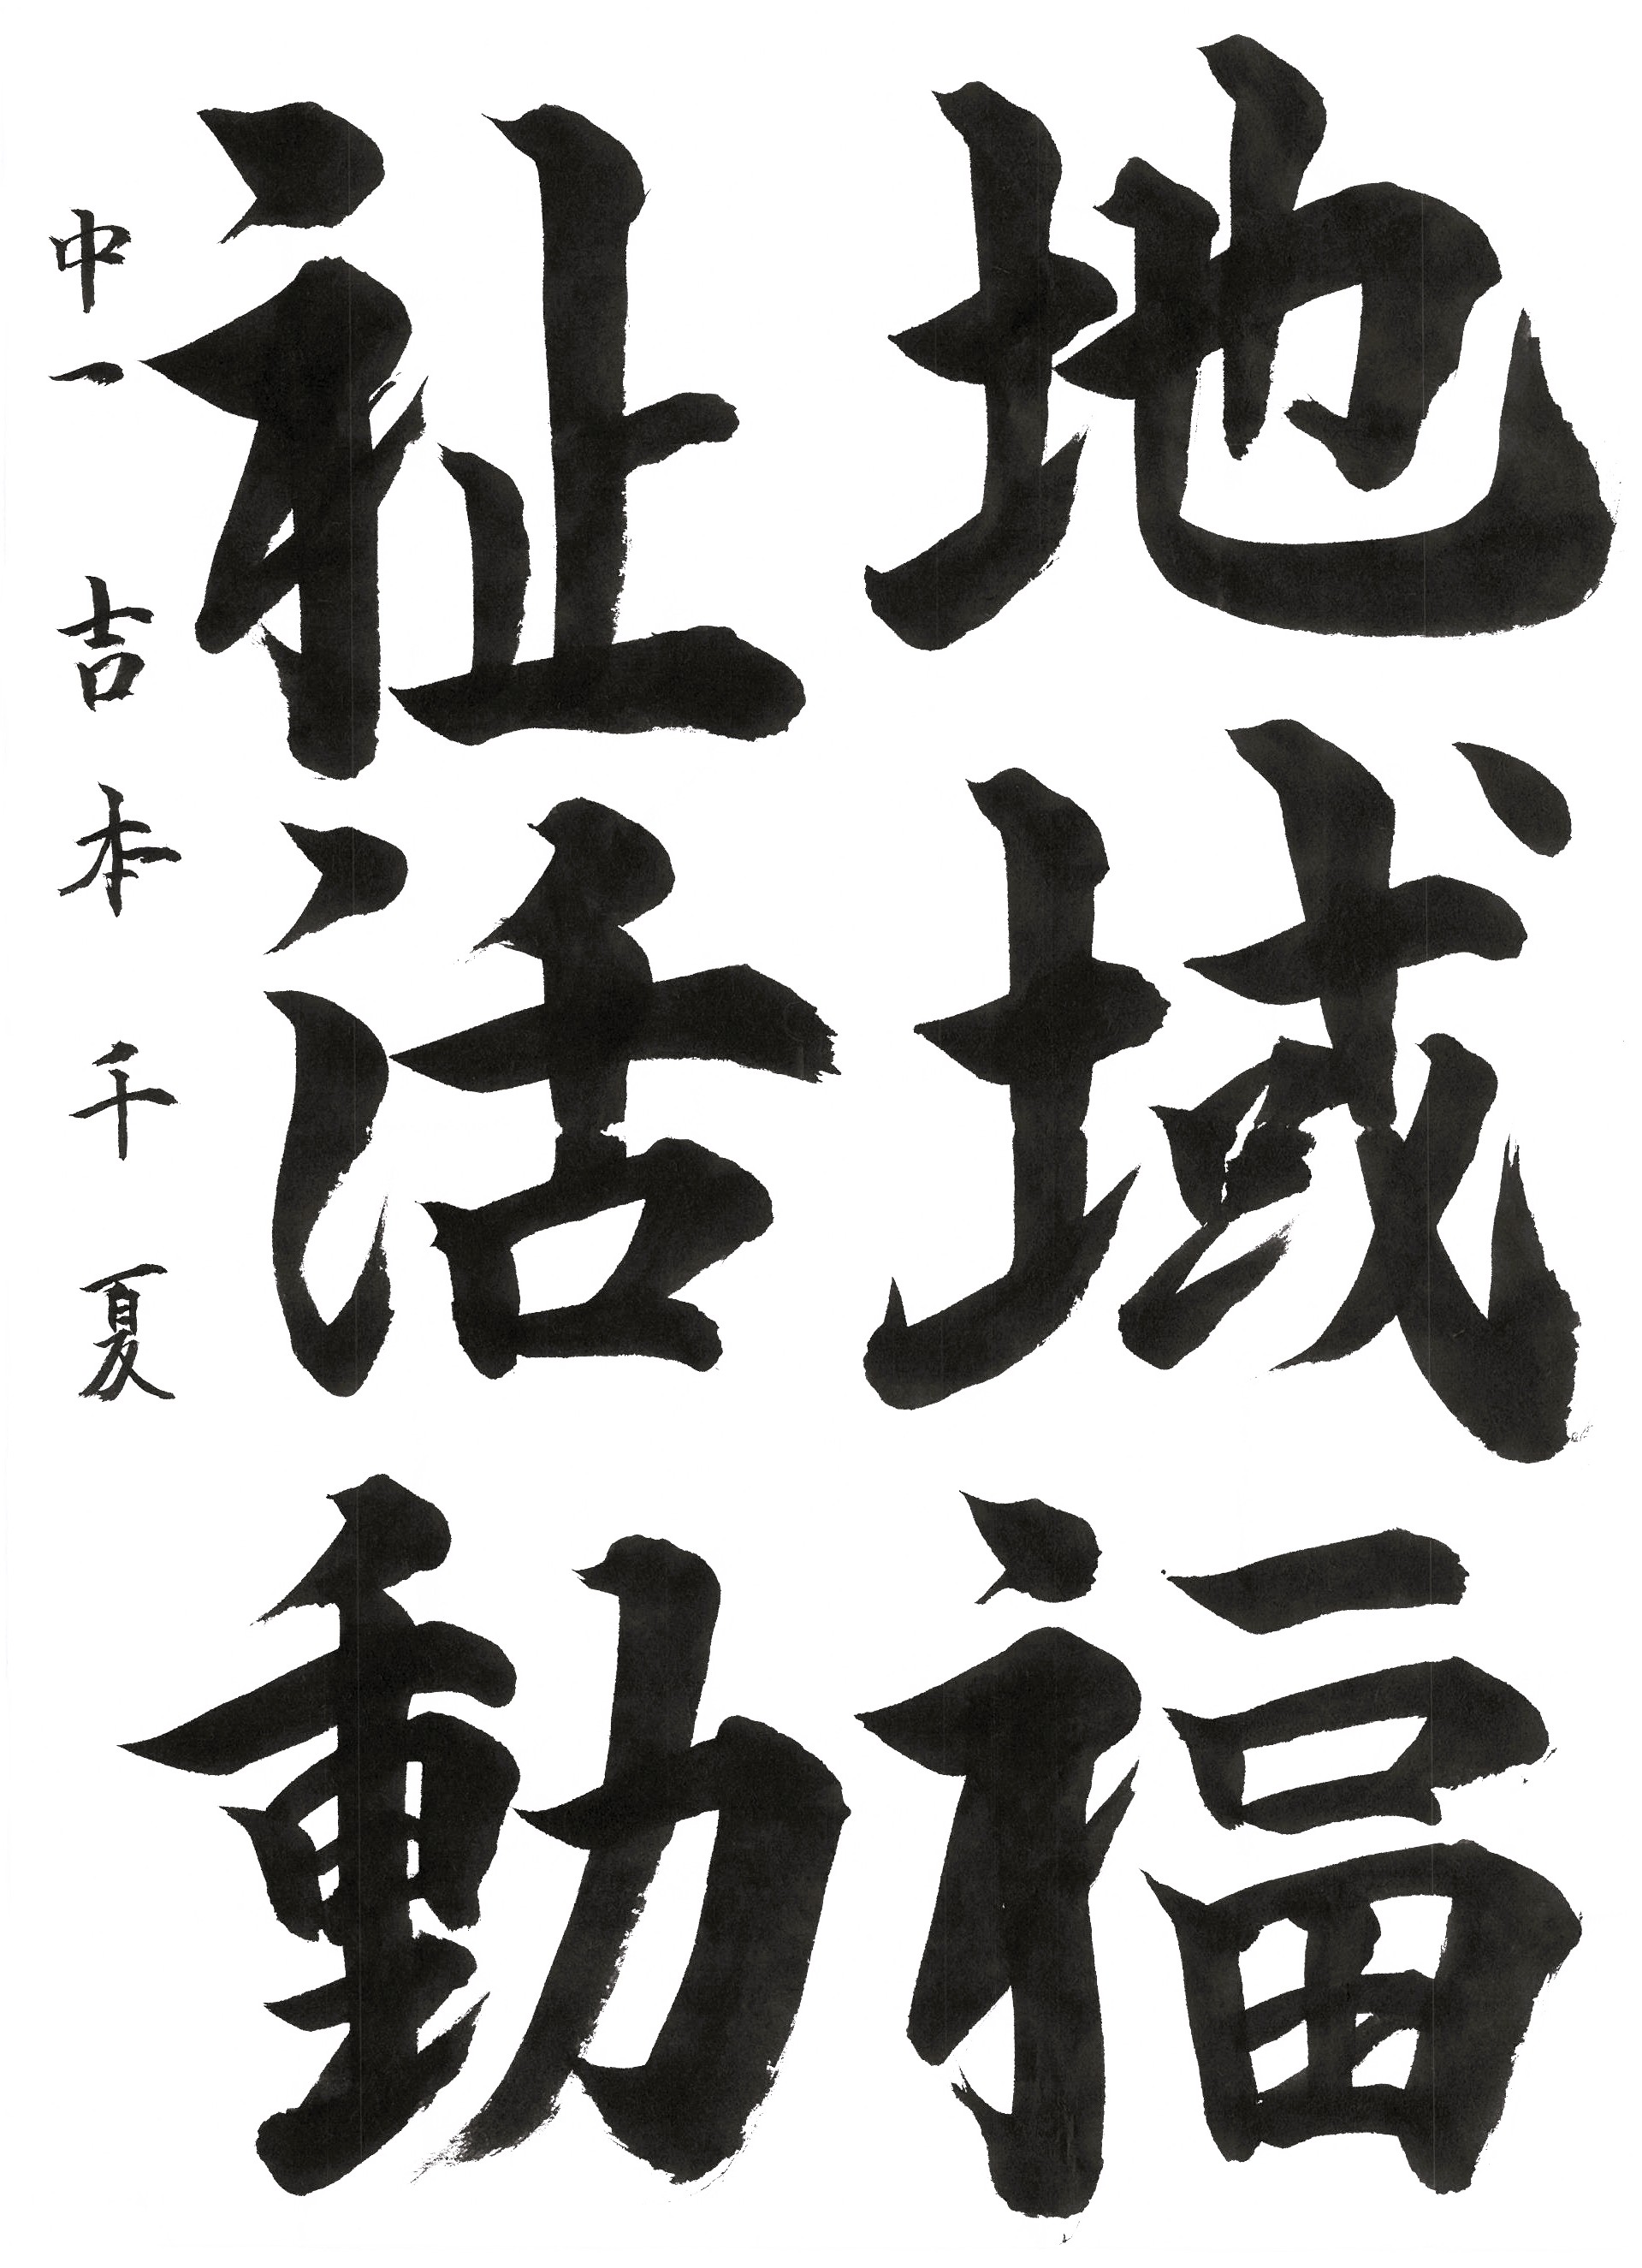 地域福
祉活動
中一 吉本千夏